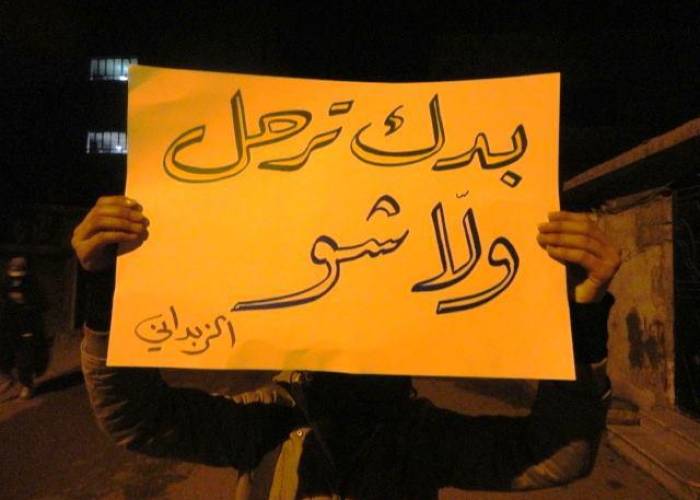 بدك ترحل
ولّا شو
الزبداني